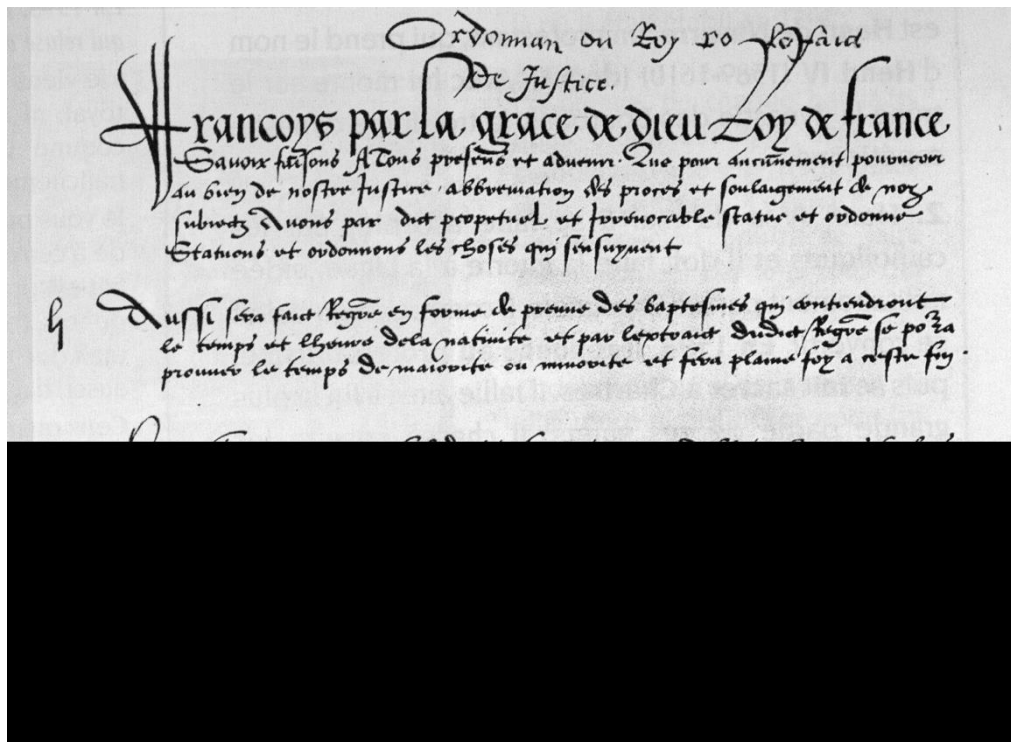 Ordonnan du Roy sur le faict
de Justice.
Francoys par la grace de dieu Roy de france
Savoir faisons A Tous presens et advenir. Que pour aucunement pourveoir
au bien de nostre Justice. abbreviation des proces et soulaigement de noz
subiectz Avons par dict perpetuel et Irrevocable statue et ordonne
Statuons et ordonnons les choses qui sensuyvent
Aussi sera faict Regre en forme de preuve des baptesmes qui contiendront
le temps et lheure dela nativite et par lextraict dudict Regre se porra
prouver le temps de maiorite ou minorite et fera plaine foy a ceste fin.